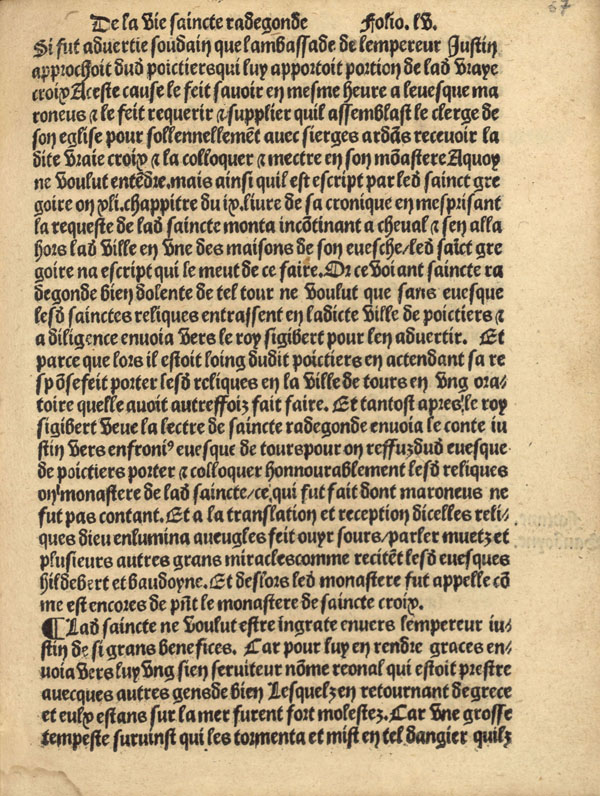 67
De la vie saincte radegonde Folio. lv.
Si fut advertie soudain que lambassade de lempereur Justin
approchoit dud poictiers qui luy apportoit portion de lad vraye
croix Aceste cause le feit savoir en mesme heure a levesque ma
roneus ⁊ le feit requerir ⁊ supplier quil assemblast le clerge de
son eglise pour sollennellemēt avec sierges ardās recevoir la
dite vraie croix ⁊ la colloquer ⁊ mectre en son mōastere Aquoy
ne voulut entēdre. mais ainsi quil est escript par led sainct gre
goire on xli. chappitre du ix. livre de sa cronique en mesprisant
la requeste de lad saincte monta incōtinant a cheval ⁊ sen alla
hors lad ville en vne des maisons de son evesche/led saīct gre
goire na escript qui le meut de ce faire. Or ce voiant saincte ra
degonde bien dolente de tel tour ne voulut que sans evesque
lesd sainctes reliques entrassent en ladicte ville de poictiers ⁊
a diligence envoia vers le roy sigibert pour len advertir. Et
parce que lors il estoit loing dudit poictiers en actendant sa re
spōse feit porter lesd reliques en la ville de tours en vng ora/
toire quelle avoit autreffoiz fait faire. Et tantost apres le roy
sigibert veue la lectre de saincte radegonde envoia le conte iu
stin vers enfroniꝰ evesque de tours pour on reffuz dud evesque
de poictiers porter ⁊ colloquer honnourablement lesd reliques
on monastere de lad saincte/ce qui fut fait dont maroneus ne
fut pas contant. Et a la translation et reception dicelles reli/
ques dieu enlumina aveugles feit ouyr sours/parler muetz et
plusieurs autres grans miracles comme recitēt lesd evesques
hildebert et baudoyne. Et deslors led monastere fut appelle cō
me est encores de pn̄t le monastere de saincte croix.
¶ Lad saincte ne voulut estre ingrate envers lempereur iu/
stin de si grans benefices. Car pour luy en rendre graces en/
voia vers luy vng sien serviteur nōme reonal qui estoit prestre
avecques autres gens de bien Lesquelz en retournant de grece
et eulx estans sur la mer furent fort molestez. Car vne grosse
tempeste survinst qui les tormenta et mist en tel dangier quilz